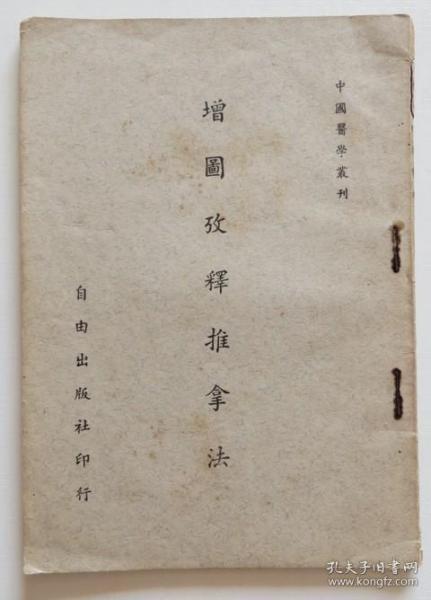 中國醫學叢刊
增圖攷釋推拿法
自由出版社印行
孔夫子旧书网
www.kongfz.com